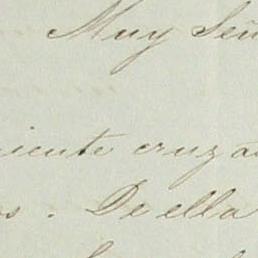 Muy Señ
iente cruza
os. De ella